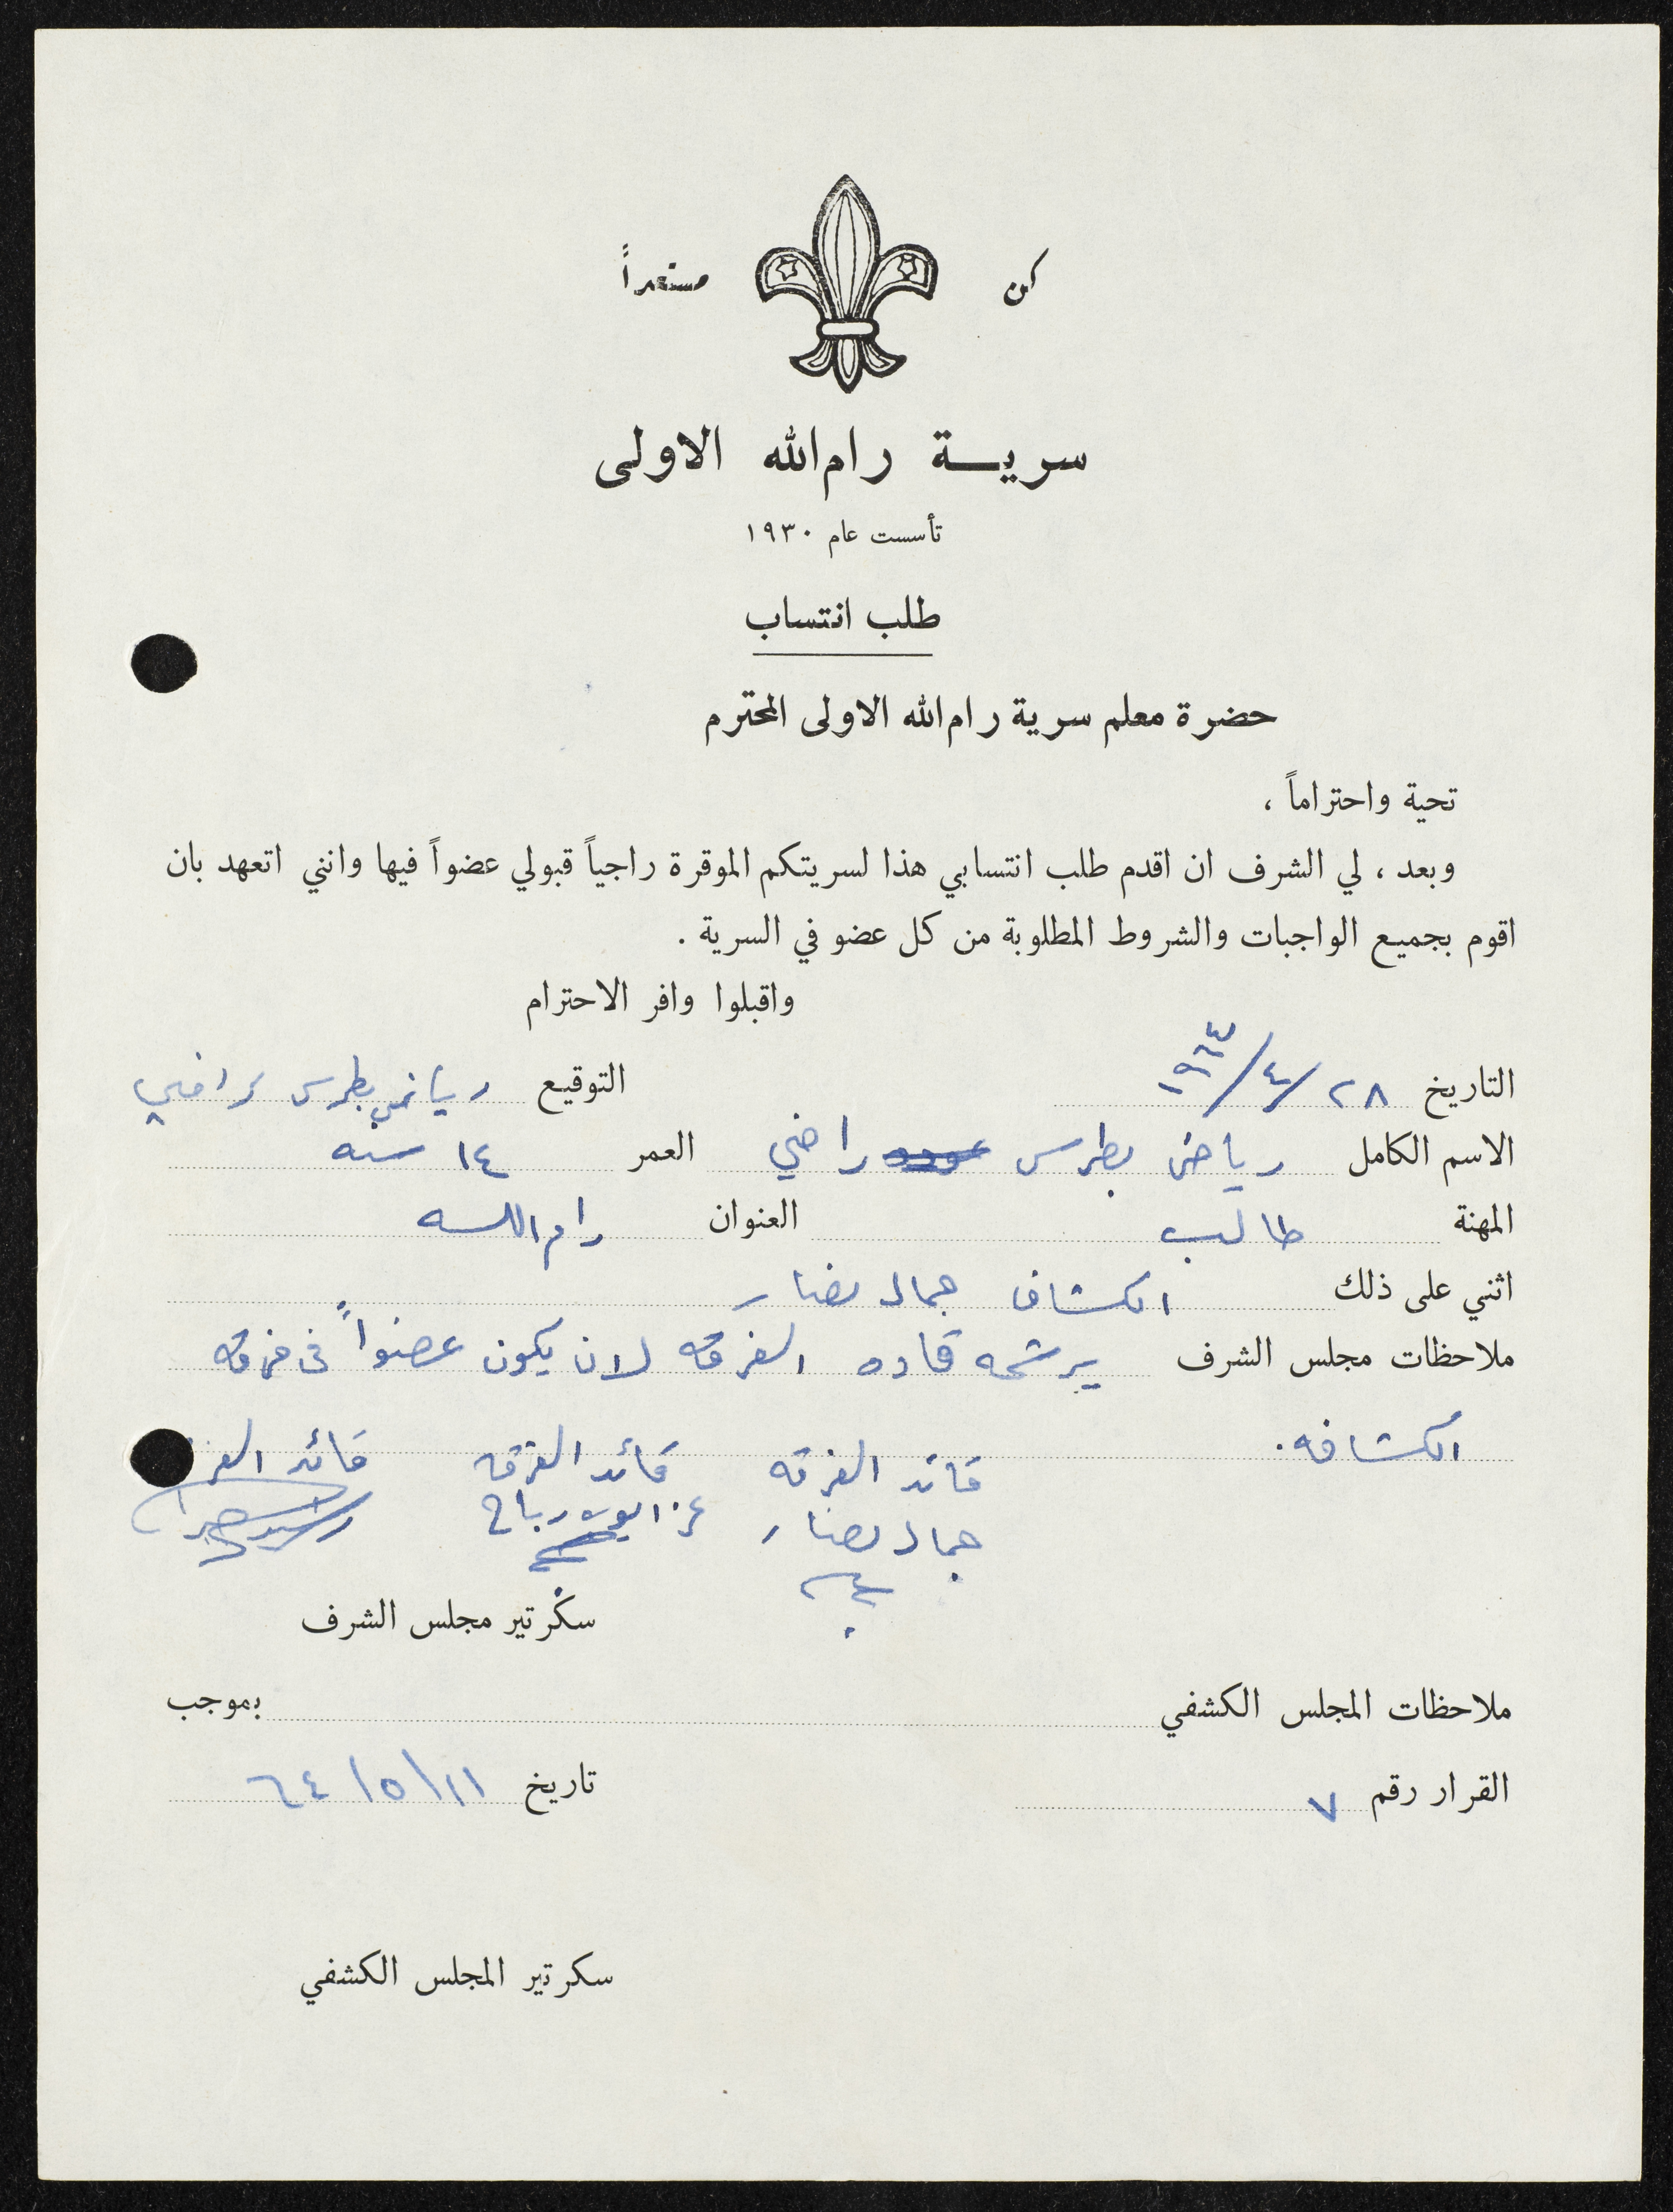 كن مستعداً
سرية رام الله الاولى
تأسست عام ١٩٣٠
طلب انتساب
حضرة معلم سرية رام الله الاولى المحترم
تحية واحتراماً ،
وبعد ، لي الشرف ان اقدم طلب انتسابي هذا لسريتكم الموقرة راجياً قبولي عضواً فيها وانني اتعهد بان
اقوم بجميع الواجبات والشروط المطلوبة من كل عضو في السرية .
واقبلوا وافر الاحترام
التاريخ ٢٨/٤/ التوقيع رياض بطرس راضي
الاسم الكامل رياض بطرس راضي العمر ١٤ سنه
المهنة طالب العنوان رام الله
اثني على ذلك الكشاف جمال نصار
ملاحظات مجلس الشرف يرشحه قاده الفرقه لان يكون عضواً في فرقه
الكشافه.
قائد الفرقه قائد الفرقه قائد
جمال نصار
سكرتير مجلس الشرف
ملاحظات المجلس الكشفي بموجب
القرار رقم ٧ تاريخ ١١/٥/٦٤
سكرتير المجلس الكشفي